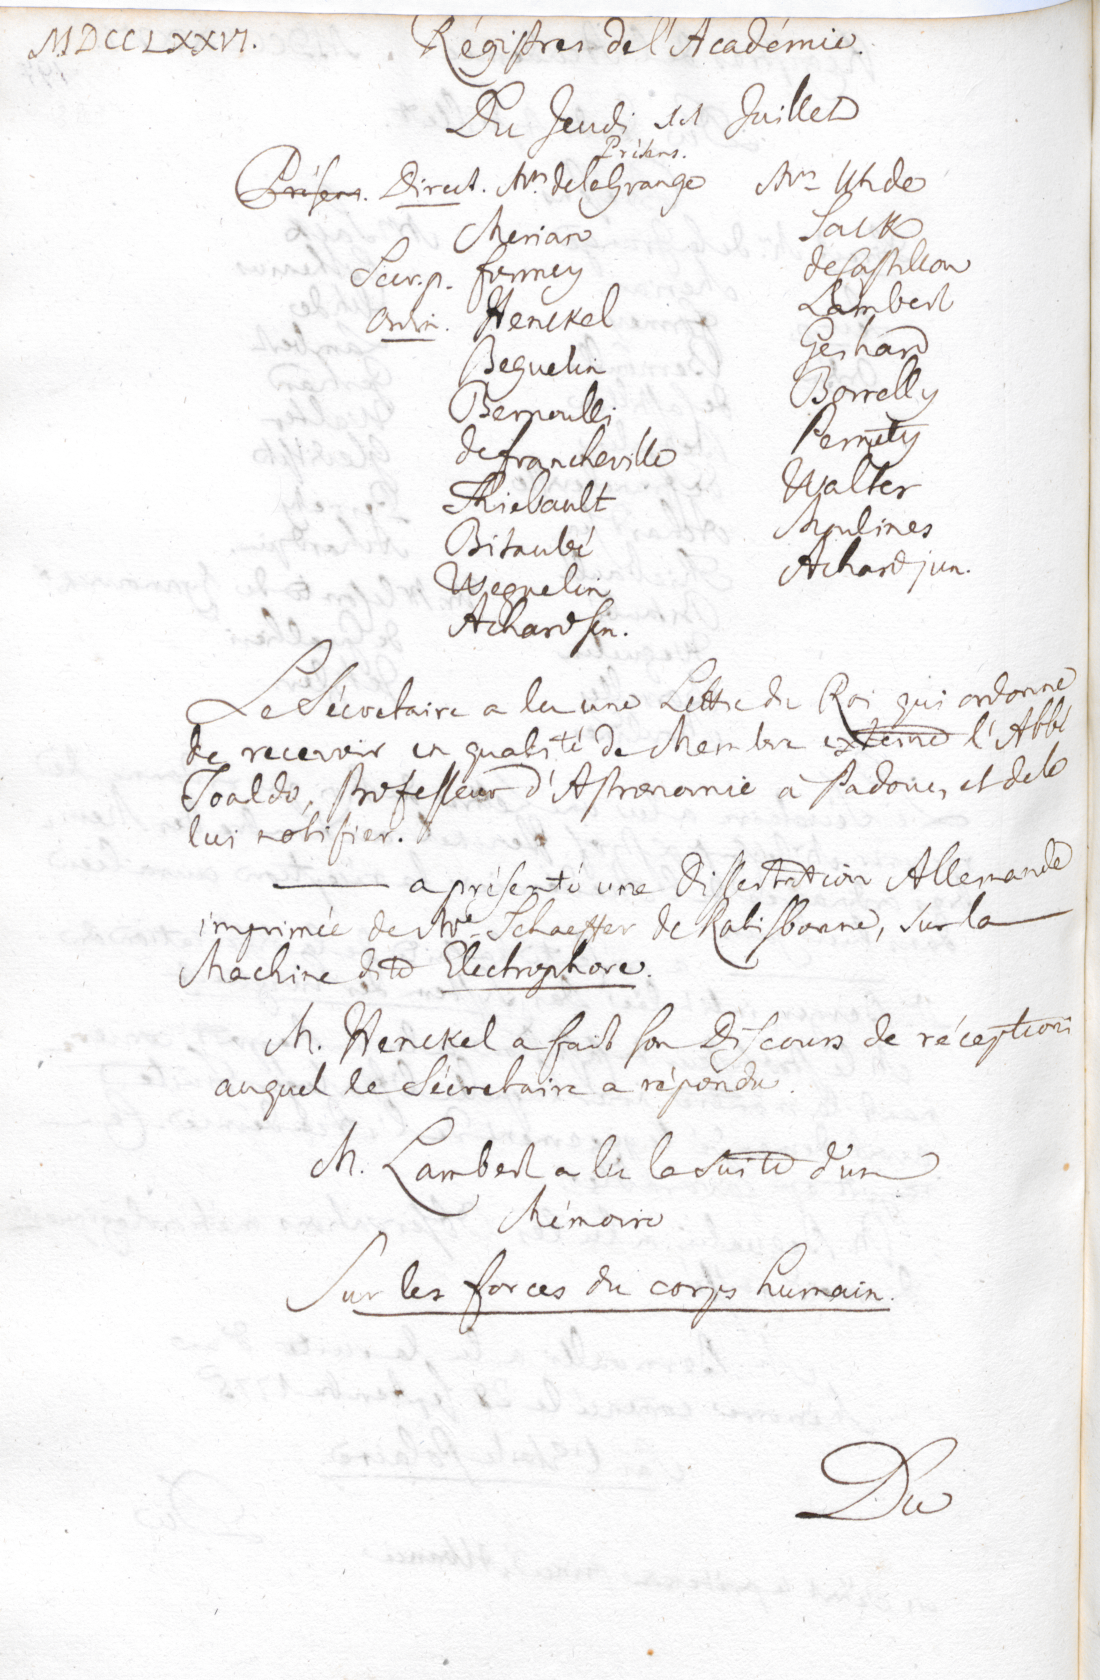 MDCCLXXVI. Régistres de l'Académie.
Du Jeudi 11 Juillet
Présens.
Présens. Direct. Mrs de la Grange Mrs Uhde
Merian Sack
Secr. p. formey de Castillon
Ordin. Henckel Lambert
Beguelin Gerhard
Bernoulli Borrelly
de francheville Pernety
Thiebault Walter
Bitaubé Moulines
Weguelin Achard jun.
Achard sen.
Le Sécretaire a lu une Lettre du Roi qui ordonne
de recevoir en qualité de Membre externe l'Abbé
Toaldo, Professeur d'Astronomie à Padoue, et de le
lui notifier.
——— a présenté une Dissertation Allemande
imprimée de Mr. Schaeffer de Ratisbonne, sur la
Machine dite Electrophore.
M. Henckel a fait son Discours de réception
auquel le Sécretaire a répondu.
M. Lambert a lu la suite d'un
Mémoire
Sur les forces du corps humain.
Du